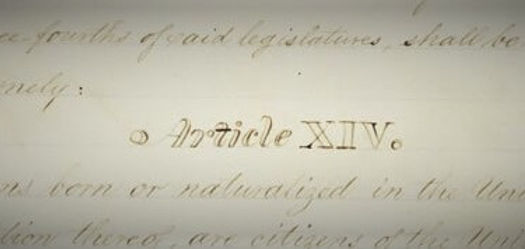 ee-fourths of said legislatures, shall be
mely:
Article XIV.
ns born or naturalized in the Uni
tion thereof, are citizens of the Uni